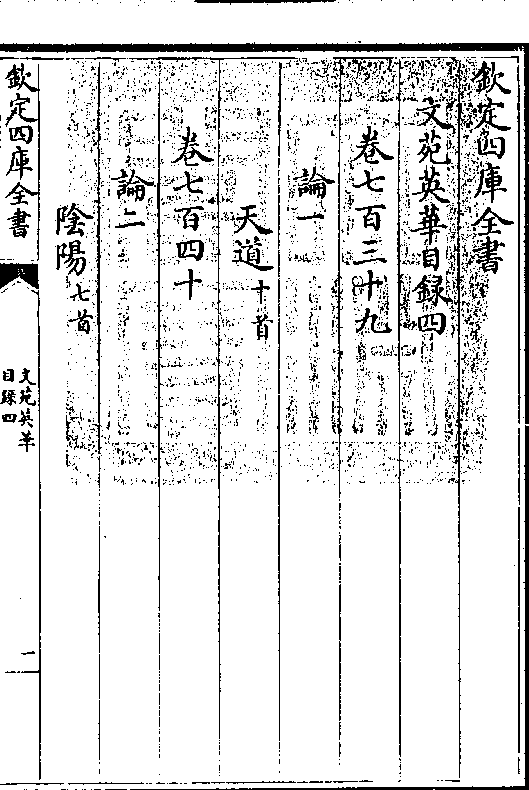 欽定四庫全書
文苑英華目録四
卷七百三十九
論一
天道十首
卷七百四十
論二
陰陽七首
欽定四庫全書
文苑英華
目録四
一